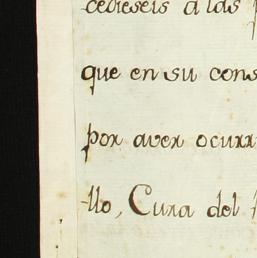 cedieseis a las
que en su cons
por aver ocurr
llo, Cura del